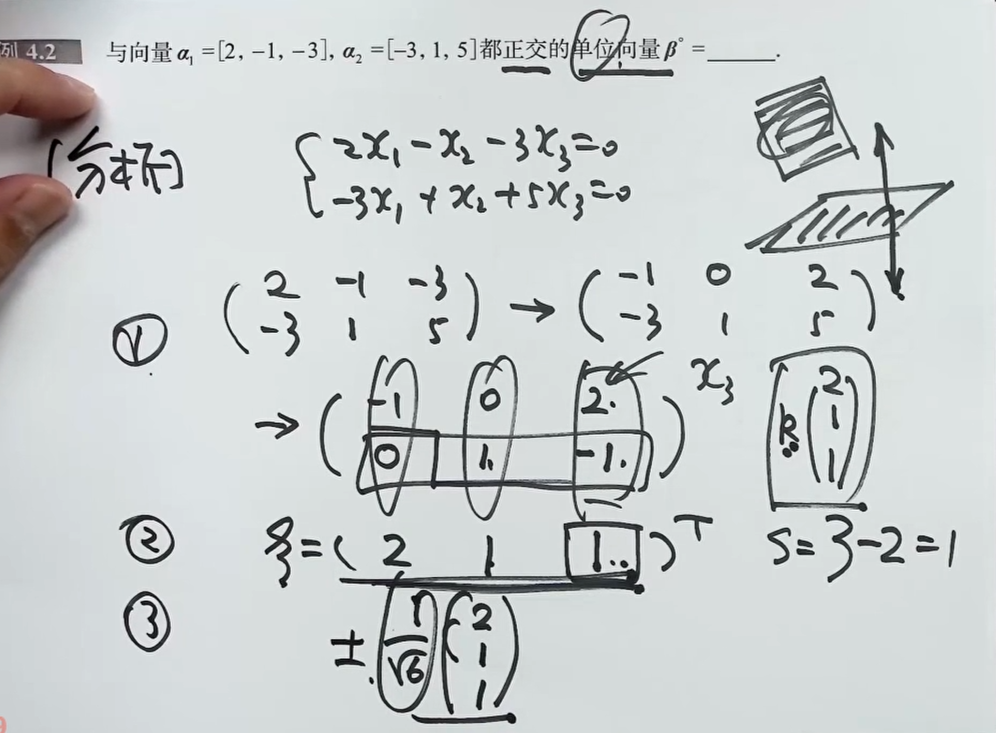 例 4.2 与向量 α₁ =[2, -1, -3], α₂ =[-3, 1, 5]都正交的单位向量 β° =______.
[分析]
{ 2x₁ - x₂ - 3x₃ = 0
-3x₁ + x₂ + 5x₃ = 0
① ( 2 -1 -3
-3 1 5 ) → ( -1 0 2
-3 1 5 )
→ ( -1 0 2
0 1 -1 ) x₃
k ( 2
1
1 )
② ξ = ( 2 1 1 )ᵀ S = 3 - 2 = 1
③ ± 1/√6 ( 2
1
1 )
9